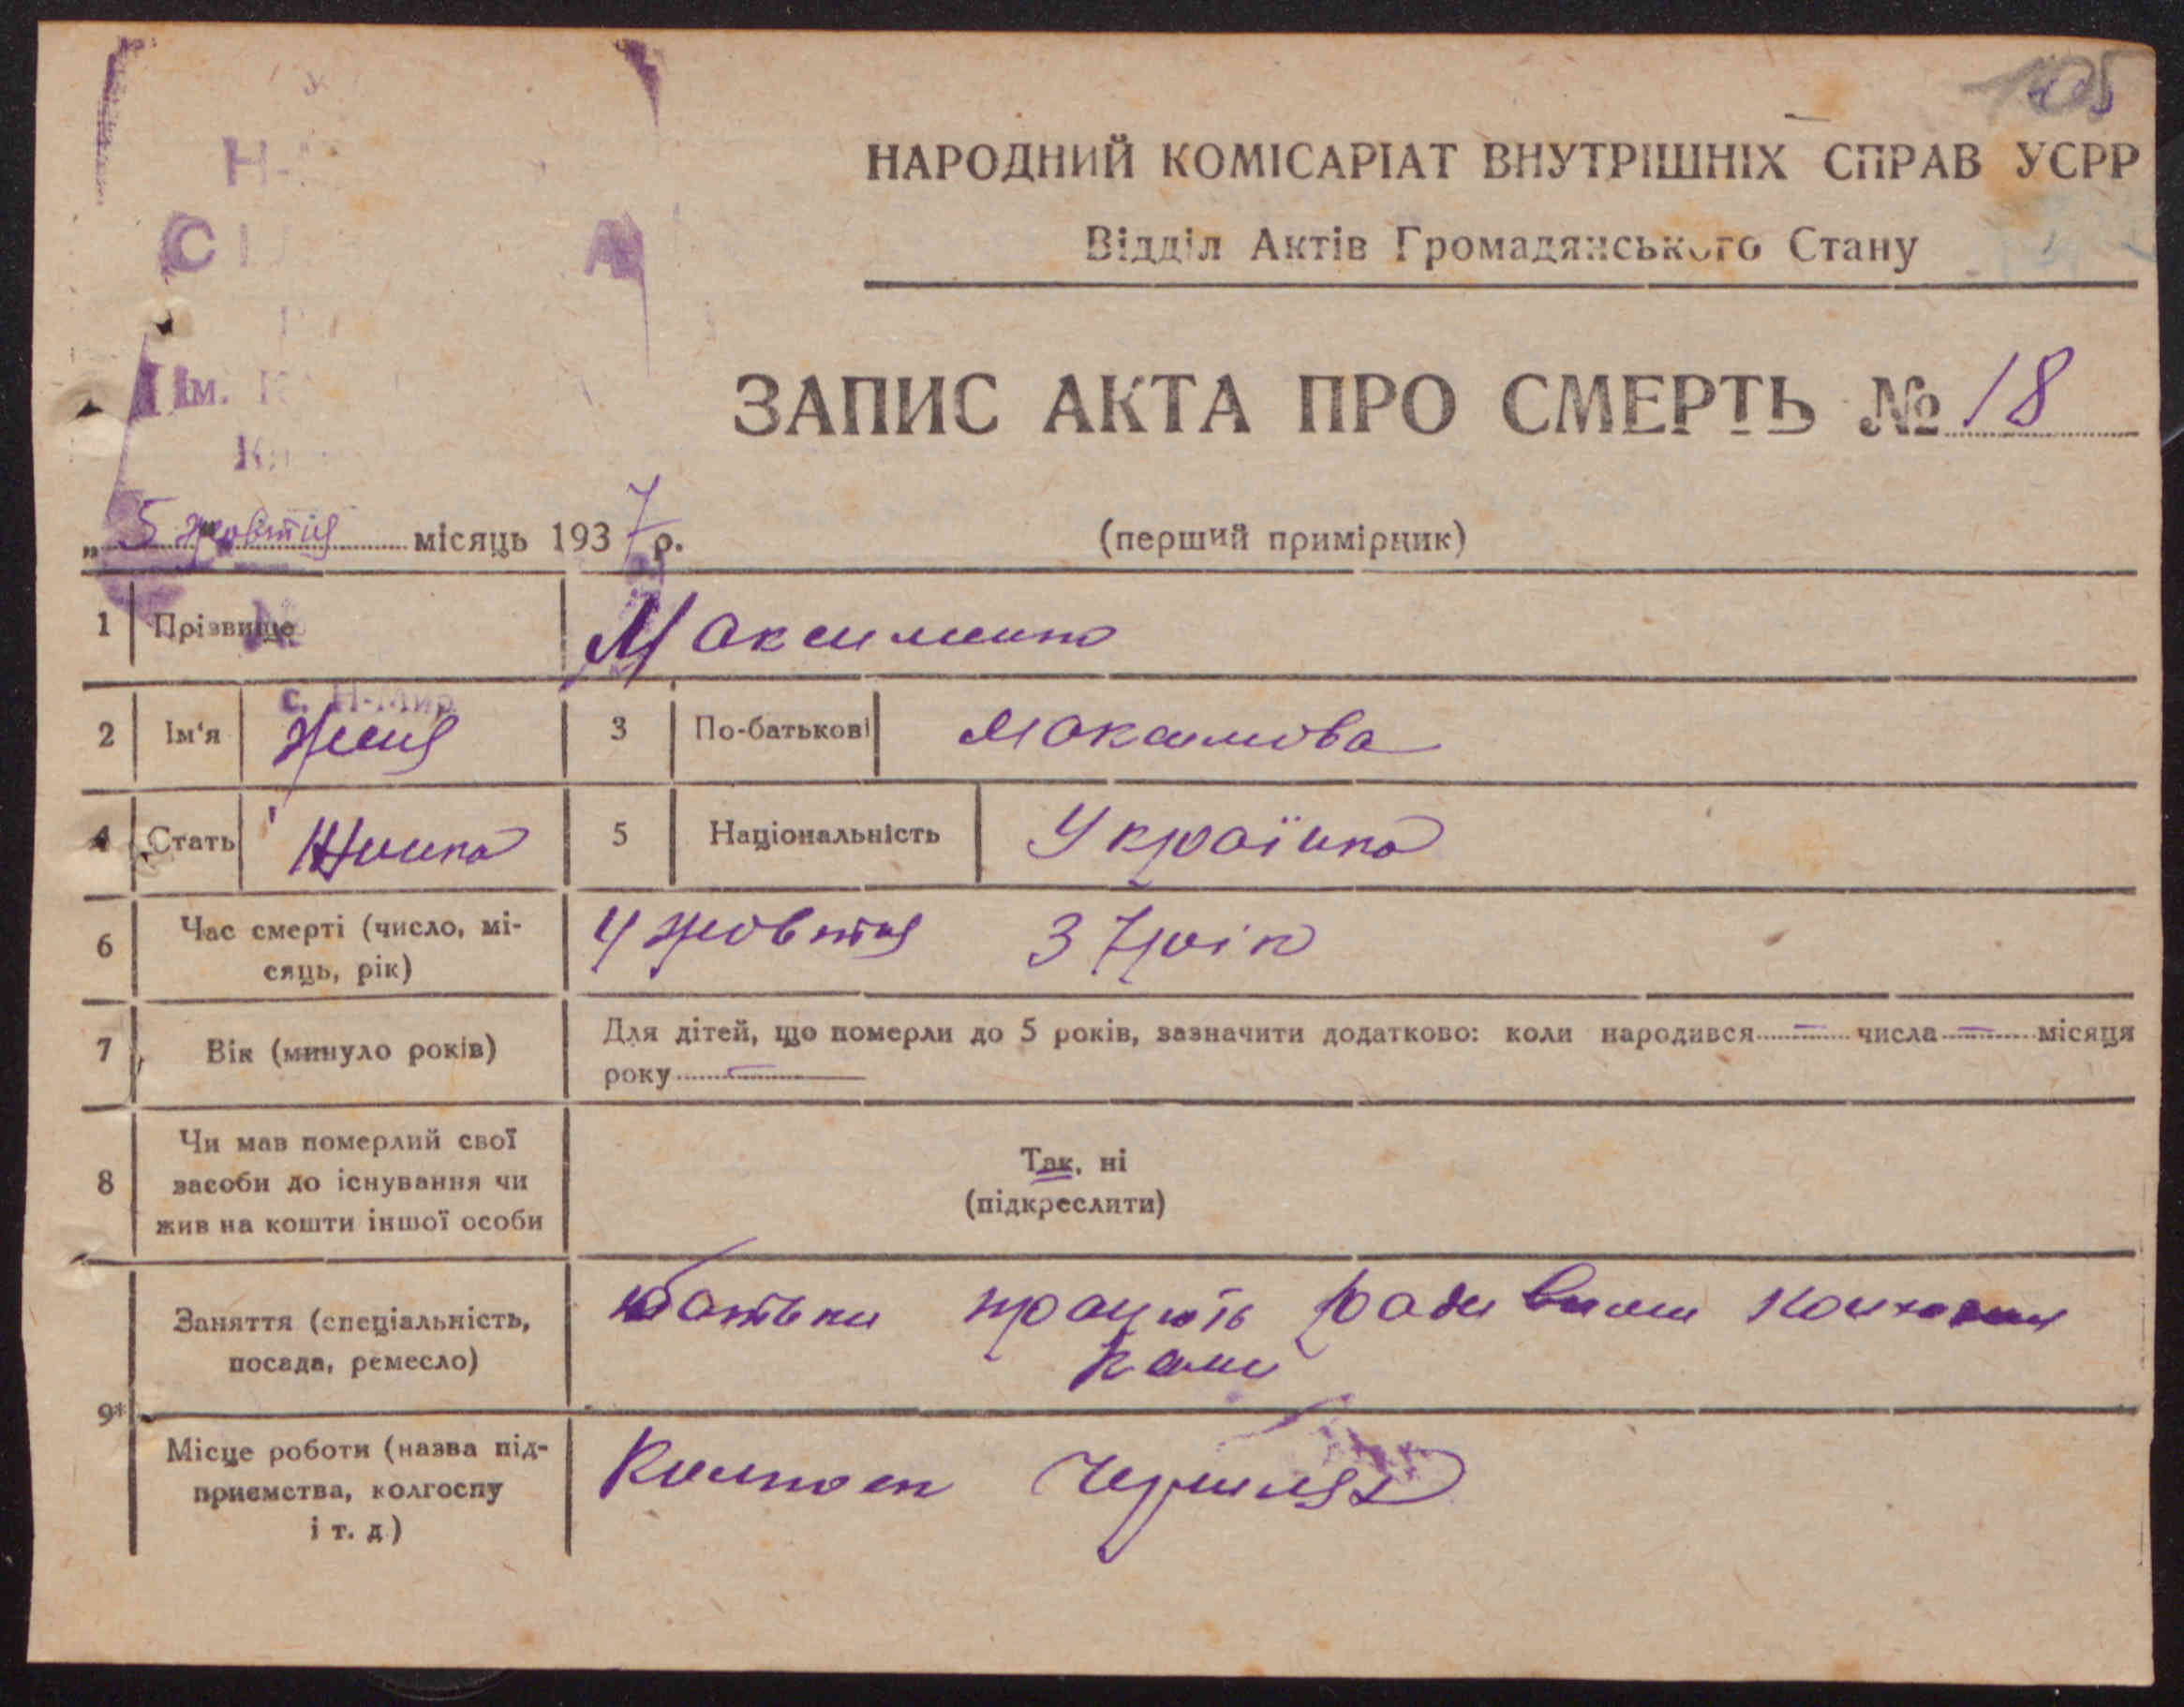 105
НАРОДНИЙ КОМІСАРІАТ ВНУТРІШНІХ СПРАВ УСРР
Відділ Актів Громадянського Стану
ЗАПИС АКТА ПРО СМЕРТЬ № 18
Ім.
„ 5 жовтня місяць 1937 р.
(перший примірник)
1 Прізвище
с. Н-Мир
2 Ім'я 3 По-батькові Макаимова
4 Стать Жінка 5 Національність Українка
6 Час смерті (число, мі-
сяць, рік)
4 жовтня 37 рік
7 Вік (минуло років)
Для дітей, що померли до 5 років, зазначити додатково: коли народився — числа — місяця
року —
8 Чи мав померлий свої
засоби до існування чи
жив на кошти іншої особи
Так, ні
(підкреслити)
9* Заняття (спеціальність,
посада, ремесло)
батьки працють
Місце роботи (назва під-
приємства, колгоспу
і т. д)